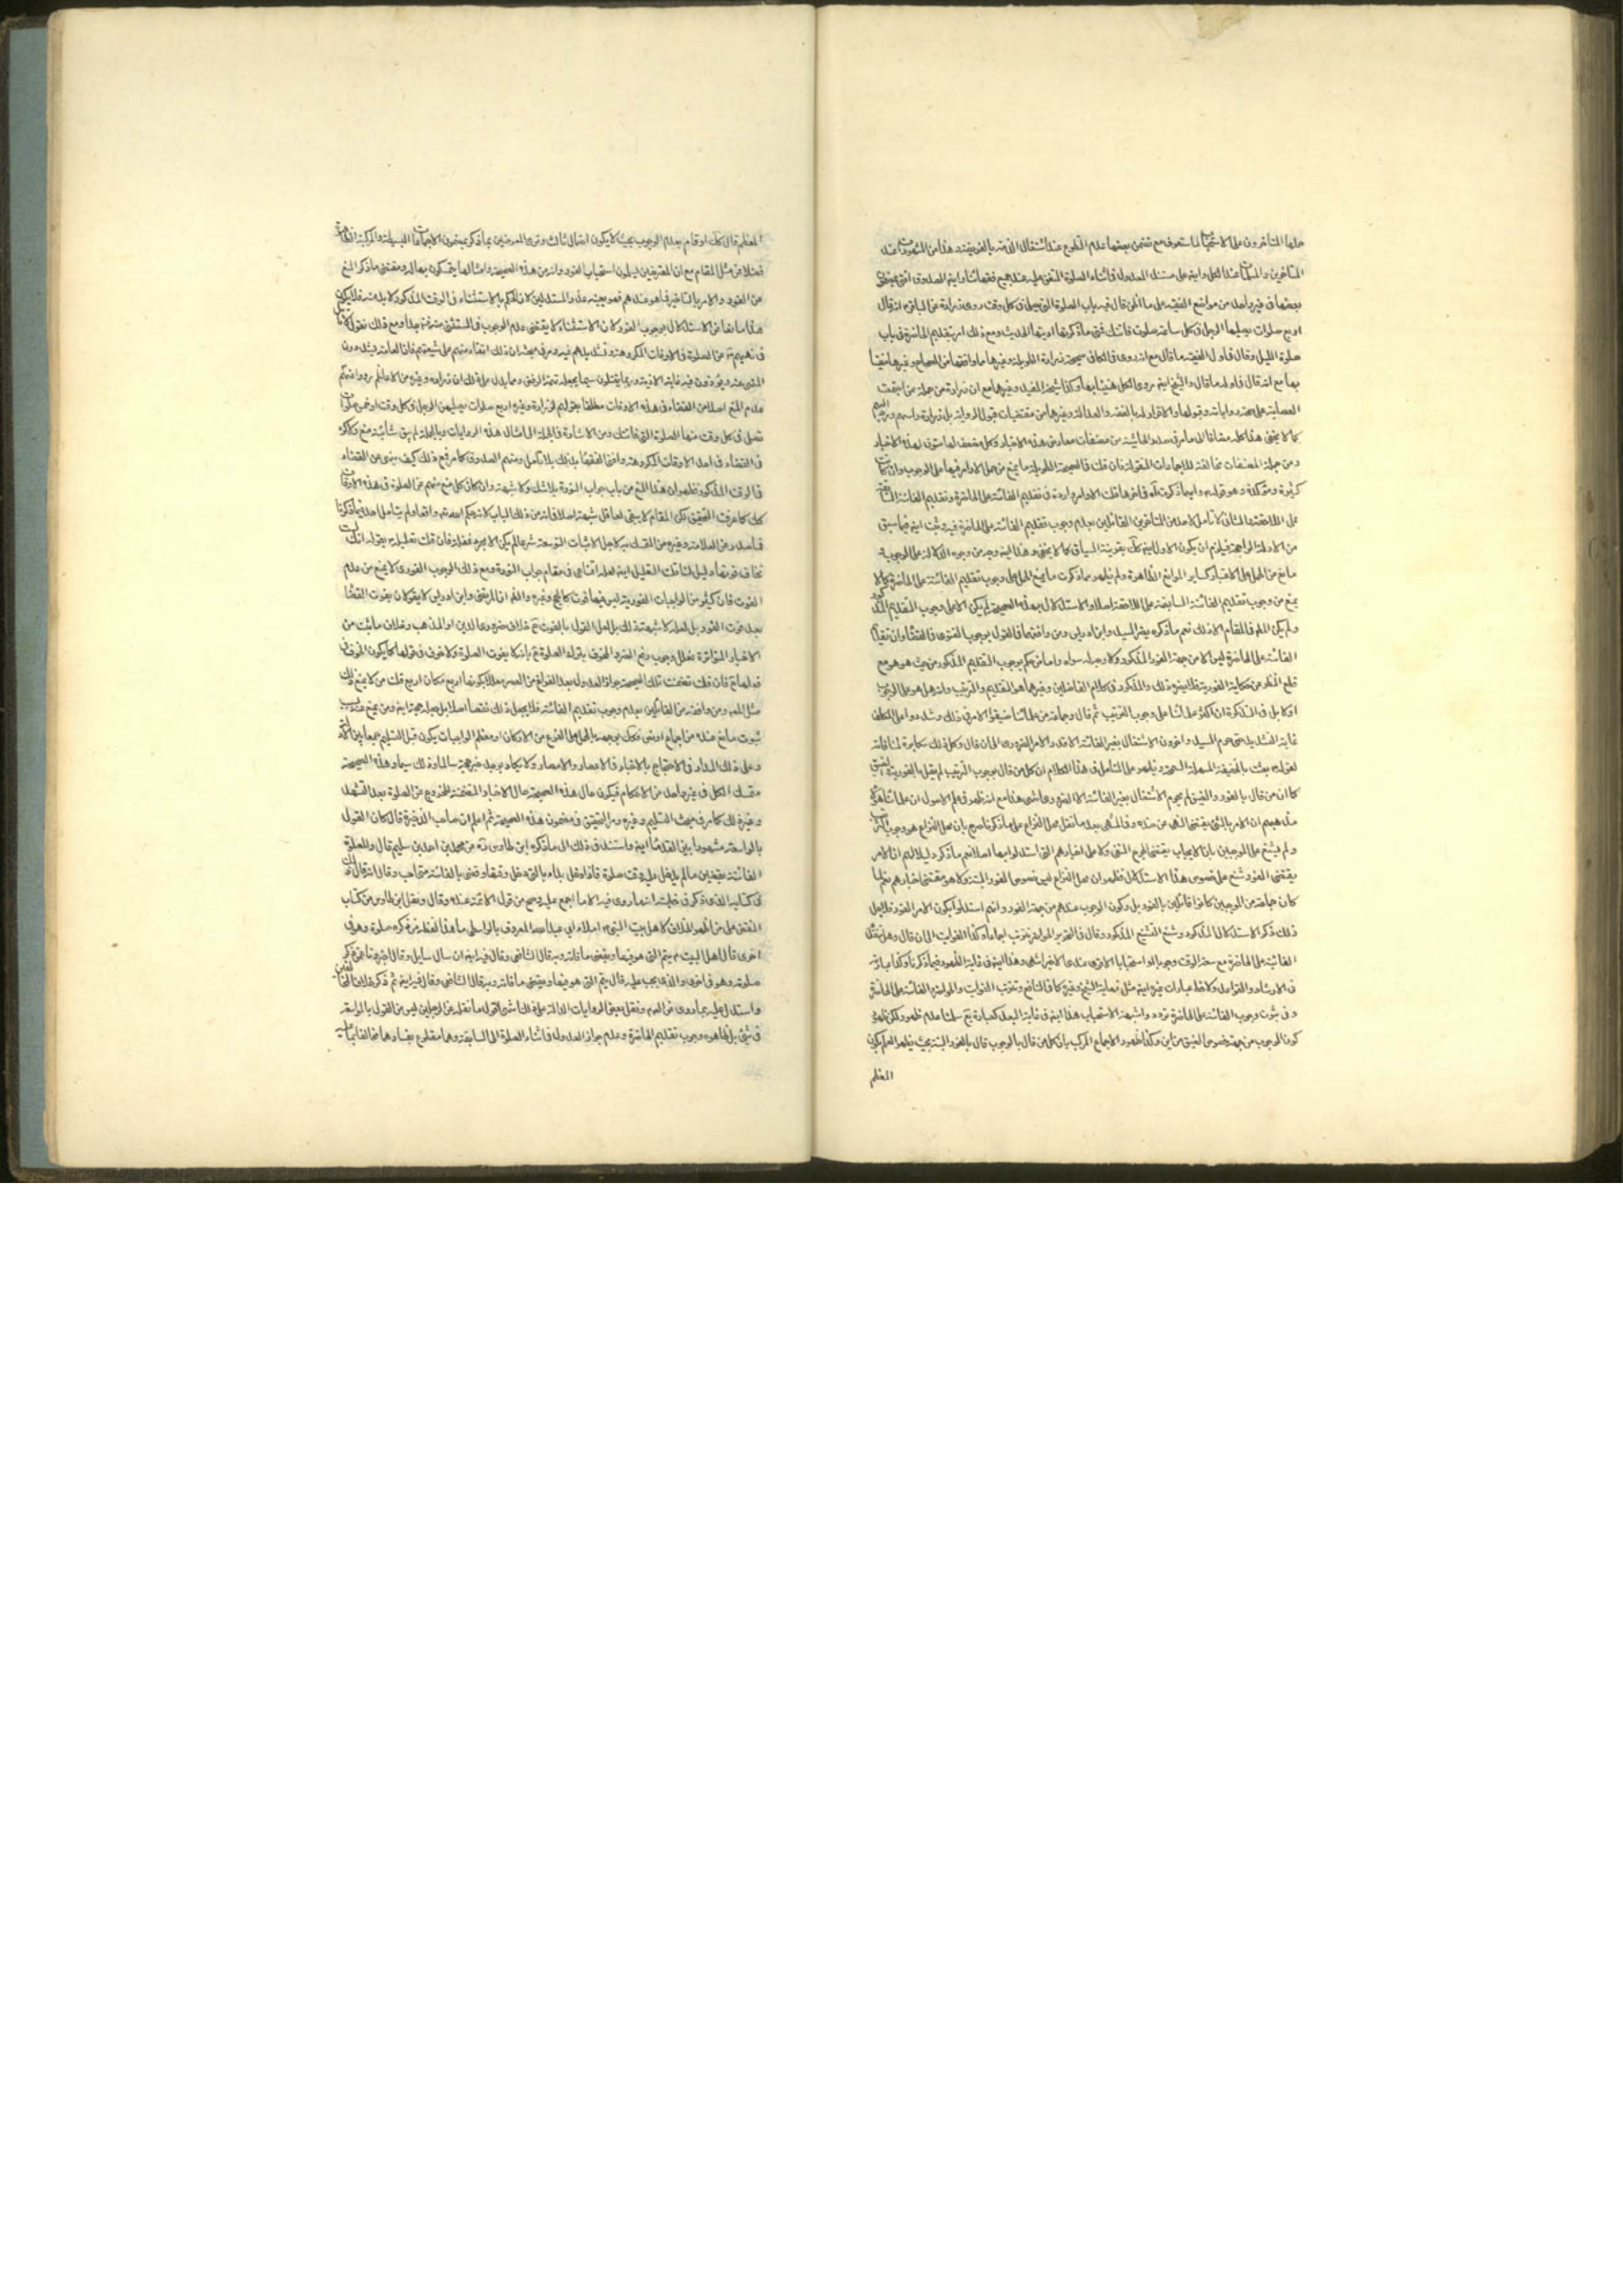 حلها المتأخرون على الاستحباب لما ستعرف مع تضمن بعضها عدم التطوع عند اشتغال الذمة بالفريضة وهذا من المشهورات عند
المتأخرين والمسلمات عند الكل وايضا على مستند العدول في اثناء الصلوة المتفق عليه عند جميع فقهائنا وايضا الصدوق افتى
بعضها في غير واحد من مواضع الفقيه على ما اظن قال في باب الصلوة التي تصلى في كل وقت روى زرارة عن الباقر انه قال
اربع صلوات يصليها الرجل في كل ساعة صلوة فاتتك فمتى ما ذكرتها اديتها الحديث ومع ذلك امر بتقديم الحاضرة في باب
صلوة الليل وقال في اول الفقيه ما قال مع انه روى في الكافي صحيحة زرارة الطويلة وغيرها مما وافقها من الصحاح وغيرها
بها مع انه قال في اوله ما قال والشيخ ايضا روى الكل وكذا شيخه المفيد وغيرهما مع ان زرارة من جملة من اجمعت
العصابة على صحة رواياته وقبولها والاقرار له بالفقه والعدالة وغيرها من مقتضيات قبول الرواية بل زرارة
كما لا يخفى هذا كله مضافا الى ما مر في صدر الحاشية من مضعفات معارض هذه الاخبار وكل مضعف لها مقو لهذه الاخبار
ومن جملة المضعفات مخالفته للاجماعات المنقولة فان قلت في الصحيحة الطويلة ما يمنع من حمل الاوامر فيها على الوجوب وان كانت
كثيرة ومؤكدة وهو قوله وايهما ذكرت آه فاذن هاتك الاوامر واردة في تقديم الفائتة على الحاضرة وتقديم الفائتة السابقة
على اللاحقة والثاني لا تأمل لاحد من المتأخرين القائلين بعدم وجوب تقديم الفائتة على الحاضرة فيه وثبت ايضا فيما سبق
من الادلة الواضحة فيلزم ان يكون الاول ايضا كك بقرينة السياق كما لا يخفى وهذا ايضا وجه من وجوه الدلالة على الوجوب
مانع من الحمل على الاستحباب كساير الموانع الظاهرة ولم يظهر مما ذكرت ما يمنع الحمل على وجوب تقديم الفائتة على الحاضرة كما لا
يمنع من وجوب تقديم الفائتة السابقة على اللاحقة اصلا والاستدلال بهذه الصحيحة لم يكن الا على وجوب التقديم المذكور
ولم يكن الله في المقام الا ذلك نعم ما ذكره يضر السيد وابن ادريس ومن وافقهما في القول بوجوب الفور في القضاء وان تقديم
الفائتة على الحاضرة ليس الا من جهة الفور المذكور ولا وجه له سواه واما من حكم بوجوب التقديم المذكور من حيث هو هو مع
قطع النظر عن حكاية الفورية فلا يضره ذلك والمذكور في كلام الفاضلين وغيرهما هو التقديم والترتيب وانه هل هو على الوجوب
او لا بل في التذكرة ان اكثر علمائنا على وجوب الترتيب ثم قال وجماعة من علمائنا ضيقوا الامر في ذلك وشددوا على المكلف
غاية التشديد حتى حرم السيد واخرون الاشتغال بغير الفائتة الا قدر والامر الضروري الى ان قال وكل ذلك مكابرة لمنافاته
لقوله بعثت بالحنيفية السمحة السهلة ويظهر على المتأمل في هذا الكلام ان كل من قال بوجوب الترتيب لم يقل بالفورية
كما ان من قال بالفور والضيق لم يحرم الاشتغال بغير الفائتة الا الضروري هذا مع انه ظهر في علم الاصول ان علمائنا
مذهبهم ان الامر بالشئ يقتضي النهى عن ضده وفي المنتهى بعد ما نقل محل النزاع على ما ذكرنا صرح بان محل النزاع هو وجوب
ولم يشنع على الموجبين بان الايجاب يقتضي الحرج المنفي ولا على اخبارهم التي استدلوا بها اصلا نعم ما ذكره دليلا لهم ان الامر
يقتضي الفور شنع على خصوص هذا الاستدلال فظهر ان محل النزاع ليس خصوص الفور البتة ولا هو مقتضى اخبارهم نعم لما
كان جماعة من الموجبين كانوا قائلين بالفور بل وكون الوجوب عندهم من جهة الفور وانهم استدلوا بكون الامر للفور فلاجل
ذلك ذكر الاستدلال المذكور وشنع التشنيع المذكور وقال في التحرير المواظبة ترتب اجماعا وكذا الفوايت الى ان قال وهل
الفائتة على الحاضرة مع سعة الوقت وجوبا او استحبابا الاقوى عندى الاخير انتهى وهذا ايضا في غاية الظهور فيما ذكرنا وكذا عبارته
في الارشاد والقواعد ولاحظ عبارات غيره ايضا مثل نهاية الشيخ وغيره كما في النافع وتترتب الفوايت والموجبة الفائتة على الحاضرة
وفي ثبوت وجوب الفائتة على الحاضرة تردد واشبهه الاستحباب هذا ايضا في غاية البعد كعبارة يع سلمنا عدم ظهور ولكن
كون الوجوب من جهة خصوص الضيق من اين وكذا ظهور الاجماع المركب بان كل من قال بالوجوب قال بالفور البتة بحيث يظهر العلم بكون
المعظم
المعظم قال كك او قام بعدم الوجوب بحيث لا يكون احتمال ثالث وترى المعرضين بما ذكر يمنعون الاجماعات البسيطة والمركبة
فضلا عن مثل المقام مع ان المعترضين يسلمون استحباب الفور وانه من هذه الصحيحة وامثالها يتمسكون بها له ومقتضى ما ذكر المنع
عن الفور والامر بالتاخير فما هو عندهم فهو بعينه عذر المستدلين لان الحكم بالاستثناء في الوقت المذكور لا بد منه فلا يكون
هذا مانعا من الاستدلال بوجوب الفور لان الاستثناء لا يقتضي عدم الوجوب في المستثنى منه جدا ومع ذلك نقول لا تأمل
في نهيهم عن الصلوة في الاوقات المكروهة وتشديدهم فيه ومر في مبحثه ان ذلك اتقاء منهم على شيعتهم فان العامة يشددون
المنع عنه ويؤذون فيه غاية الاذية وربما يقتلون سيما يجعله تهمة الرفض ومما يدل على ذلك ان زرارة وغيره من الاعاظم رووا عنهم
عدم المنع اصلا من القضاء في هذه الاوقات مطلقا بقولهم لزرارة وغيره اربع صلوات يصليهن الرجل في كل وقت او خمس صلوات
تصلى في كل وقت منها الصلوة التي فاتتك ومن الاشارة في الجملة الى امثال هذه الروايات وبالجملة لم يبق شائبة منع ولا كره
في القضاء في احد الاوقات المكروهة وافتى الفقهاء بذلك بلا تأمل ومنهم الصدوق كما مر فمع ذلك كيف ينهى عن القضاء
في الوقت المذكور فظهر ان هذا المنع من باب جواب النورة بلا شك ولا شبهة وان كان كل منع منهم عن الصلوة في هذه الاوقات
كك كما عرفت التحقيق لكن المقام لا يبقى لعاقل شبهة اصلا في انه من ذلك الباب لانه حكم الله تعالى واقعا ولم يتأمل احد فيما ذكرنا
فما صدر من العلامة وغيره من التمسك به لاجل الاثبات التوسعة شرعا لم يكن الا مجرد غفلة فان قلت تعليله بقوله انك لست
تخاف فوتها دليل لما قلت التعليل ايضا لعله اقناعي في مقام جواب النورة ومع ذلك الوجوب الفوري لا يمنع من عدم
الفوت فان كثيرا من الواجبات الفورية ليس فيها فوت كالحج وغيره والله ان المرتضى وابن ادريس لا يقولان بفوت القضاء
بعد فوت الفور بل لعله لا شبهة في ذلك بل لعل القول بالفوت ثم خلاف ضروري الدين او المذهب وخلاف ما ثبت من
الاخبار المتواترة نعلل وجوب دفع الضرر الخوف بقوله الصلوة ثم بانه لا يفوت الصلوة ولا خوف في فوتها انما يكون الخوف في
فعلها ثم فان قلت تضمنت تلك الصحيحة جواز العدول بعد الفراغ من العصر معللا بكونها اربع مكان اربع قلت من لا يمنع ذلك
مثل المه ومن وافقه من القائلين بعدم وجوب تقديم الفائتة فلا يجعل ذلك نقصا اصلا بل يجعله حجة ايضا ومن يمنع عنه بسبب
ثبوت مانع عنده من اجماع او نص فكك يوجهه بالحمل على الفراغ من الاركان او معظم الواجبات يكون قبل التسليم جمعا بين الادلة
وعلى ذلك المدار في الاحتجاج بالاخبار في الاعصار والامصار ولا يكاد يوجد خبر حجة سالما وذلك سيما وهذه الصحيحة
متمسك الكل في غير واحد من الاحكام فيكون حال هذه الصحيحة حال الاخبار المتضمنة للخروج عن الصلوة بعد التشهد
وغير ذلك كما مر في مبحث التسليم وغيره ومر التحقيق في مضمون هذه الصحيحة ثم اعلم ان صاحب الذخيرة قال كان القول
بالمواسعة مشهورا بين القدماء ايضا واستند في ذلك الى ما ذكره ابن طاوس ره عن محمد بن احمد بن سليم قال والصلوة
الفائتة يقضين ما لم يدخل عليه وقت صلوة فاذا دخل بدأ بالتي دخل وقتها وقضى بالفائتة متى احب وقال انه قال ذلك
في كتابه الذي ذكر في خطبته انه ما روى فيه الا ما اجمع عليه وصح من قول الائمة عنده وقال ونقل ابن طاوس من كتاب
النقض على من اظهر الخلاف لاهل بيت النبي املاء ابي عبد الله المعروف بالواسطي ما هذا لفظه من ذكر صلوة وهو في
اخرى قال اهل البيت يتم التي هو فيها ويقضي ما فاتته وبه قال الشافعي وقال فيه ايضا ان سال سايل وقال اخبرونا عمن ذكر
صلوة وهو في اخرى ما الذي يجب عليه قال يتم التي هو فيها ويقضي ما فاتته وبه قال الشافعي وقال فيه ايضا ثم ذكر خلاف المخالفين
واستدل عليه بما روى عن الصم ونقل بعض الروايات الدالة على ذلك انتهى اقول ما نقله عن الرجلين ليس من القول بالمواسعة
في شئ بل ظاهره وجوب تقديم الحاضرة وعدم جواز العدول في اثناء الصلوة الى السابقة وهما مقطوع بفسادهما